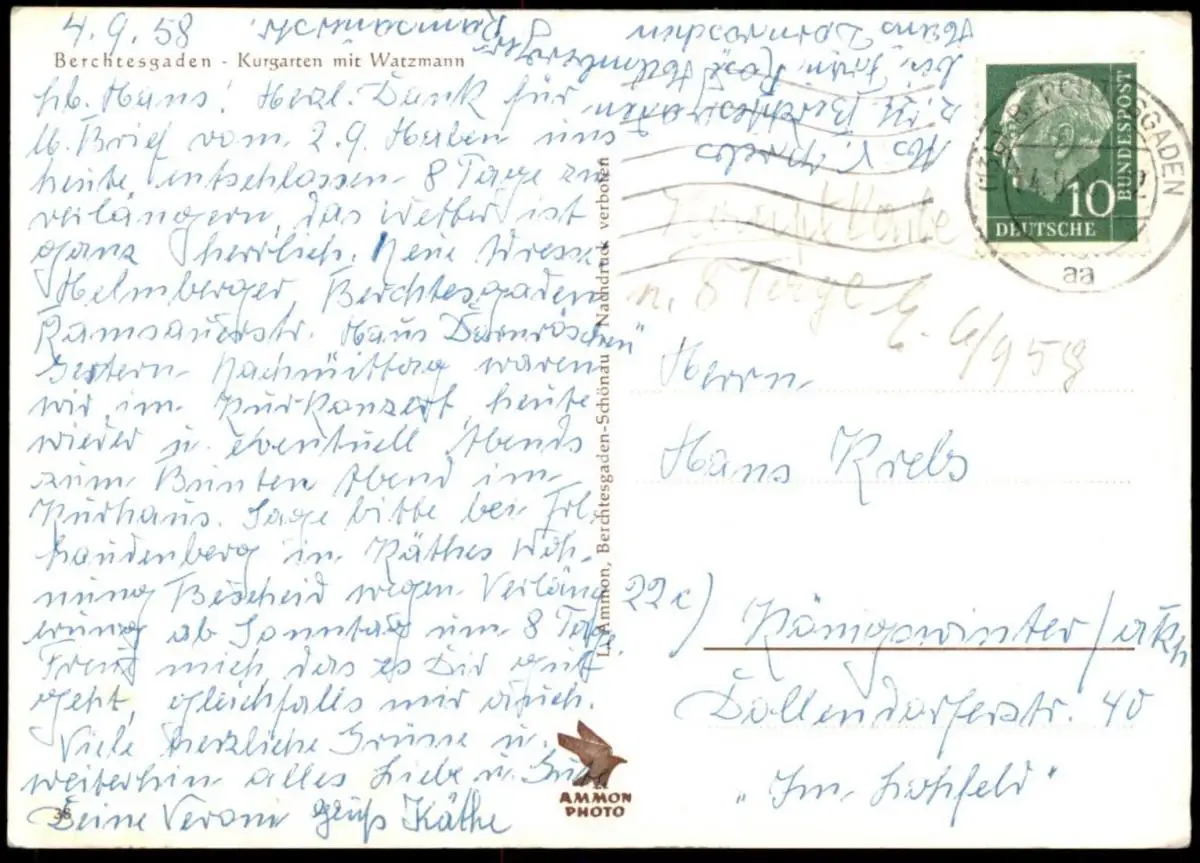 4.9.58
Berchtesgaden - Kurgarten mit Watzmann
Hans! Herzl. Dank für
lb. Brief vom 2.9. Haben uns
heute entschlossen 8 Tage zu
verlängern, das Wetter ist
ganz herrlich. Meine Adresse
Helmberger, Berchtesgaden
Ramsauerstr. Haus Dornröschen"
Gestern Nachmittag waren
wir im Kurkonzert, heute
wieder u. eventuell Abends
zum Bunten Abend im
Kurhaus. Sage bitte bei Frl.
Laudenberg in Käthes Woh-
nung Bescheid wegen Verläng
erung ab Sonntag um 8 Tage.
Freut mich, das es Dir gut
geht, gleichfalls mir auch.
Viele herzliche Grüsse u.
weiterhin alles Liebe u. Gute
Deine Gruß Käthe
36
Abs. V. Krebs
z. Zt. Berchtesgaden
bei Frau Rosl Helmberger
Haus Dornröschen
Ramsauerstr.
L. Ammon, Berchtesgaden-Schönau Nachdruck verboten
AMMON
PHOTO
10
DEUTSCHE
BUNDESPOST
BERCHTESGADEN
aa
n. 8 Tage
6/9 58
Herrn
Hans Krebs
22c) Königswinter/
Dollendorferstr. 40